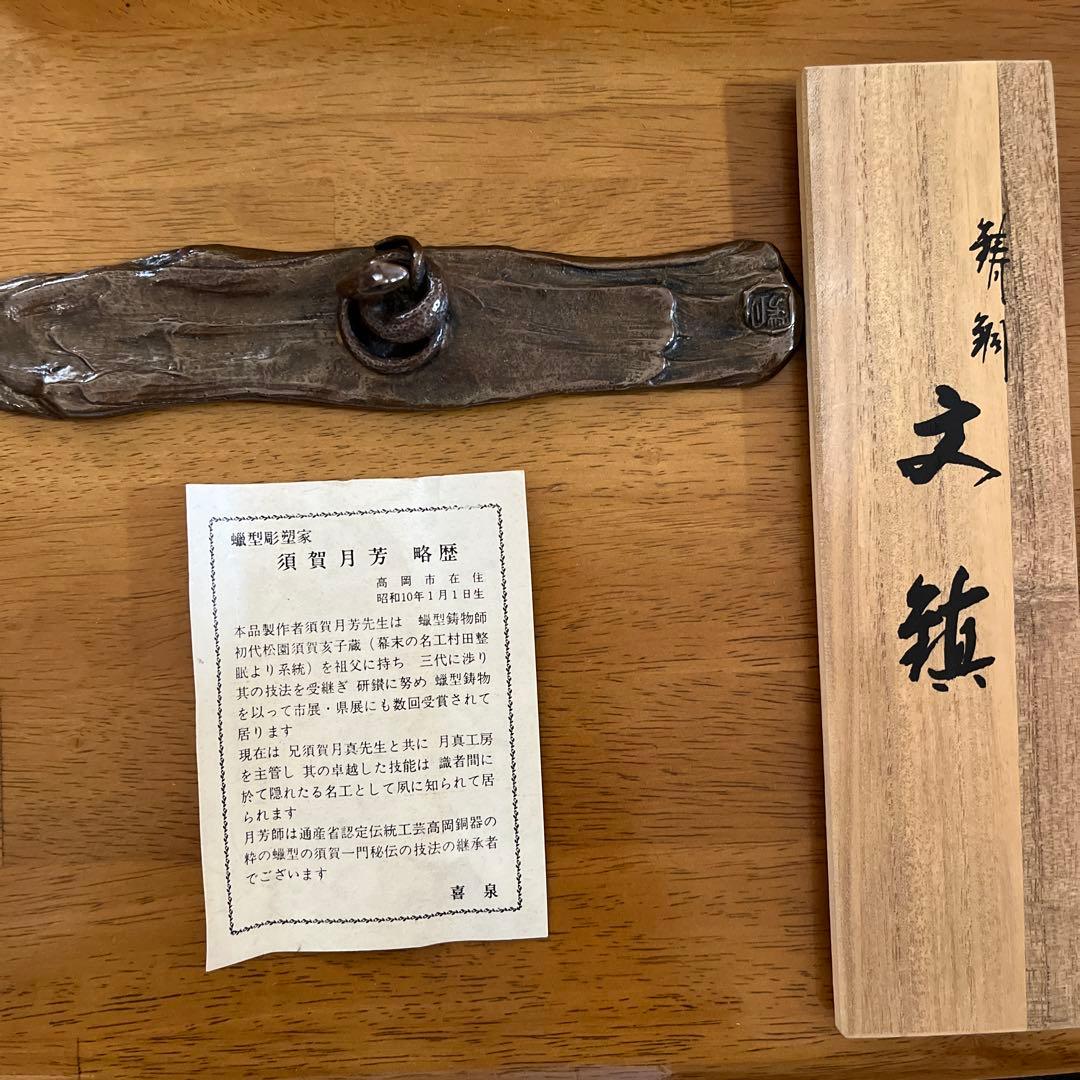 蠟型彫塑家
須賀月芳 略歴
高岡市在住
昭和10年1月1日生
本品製作者須賀月芳先生は 蠟型鋳物師
初代松園須賀亥子蔵(幕末の名工村田整
眠より系統)を祖父に持ち 三代に渉り
其の技法を受継ぎ 研鑚に努め 蠟型鋳物
を以って市展・県展にも数回受賞されて
居ります
現在は 兄須賀月真先生と共に 月真工房
を主管し 其の卓越した技能は 識者間に
於て隠れたる名工として夙に知られて居
られます
月芳師は通産省認定伝統工芸高岡銅器の
粋の蠟型の須賀一門秘伝の技法の継承者
でございます
喜泉
鋳銅
文鎮